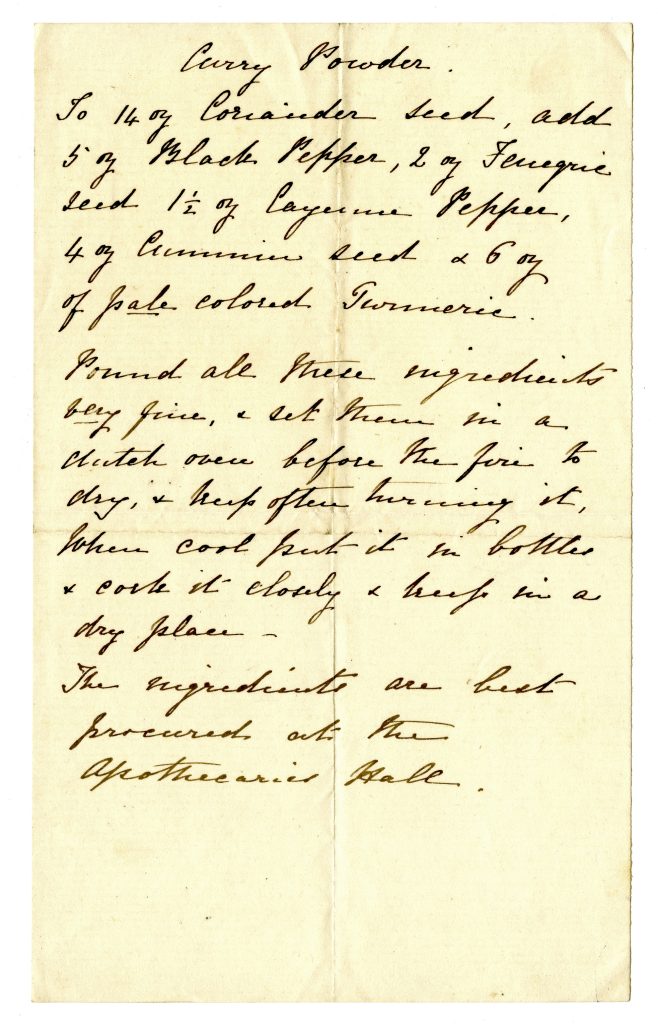 Curry Powder.
To 14 oz Coriander seed, add
5 oz Black Pepper, 2 oz Fenegric
seed 1½ oz Cayenne Pepper,
4 oz Cummin seed & 6 oz
of pale colored Turmeric.
Pound all these ingredients
very fine, & set them in a
dutch oven before the fire to
dry, & keep often turning it,
When cool put it in bottles
& cork it closely & keep in a
dry place –
The ingredients are best
procured at the
Apothecaries Hall.